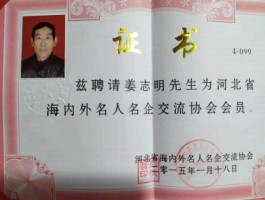 证书
4-099
兹聘请姜志明先生为河北省
海内外名人名企交流协会会员。
河北省海内外名人名企交流协会
二零一五年一月十八日